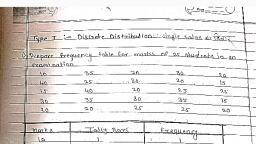 Type I :- Discrete Distribution : single value
Prepare frequency table for marks of 25 students in an
examination
10 35 20 30 20
10 25 30 20 15
15 40 20 25 25
30 35 30 35 15
20 20 25 25 20
Marks Tally Bars Frequency
10